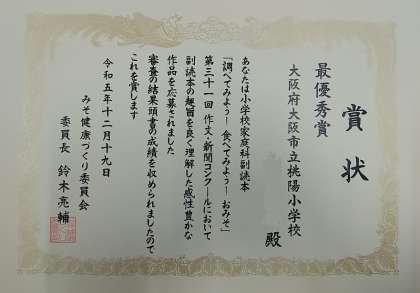 賞状
最優秀賞
大阪府大阪市立桃陽小学校
殿
あなたは小学校家庭科副読本
「調べてみよう!食べてみよう!おみそ」
第三十一回 作文・新聞コンクールにおいて
副読本の趣旨を良く理解した感性豊かな
作品を応募されました
審査の結果頭書の成績を収められましたので
これを賞します
令和五年十二月十九日
みそ健康づくり委員会
委員長 鈴木亮輔